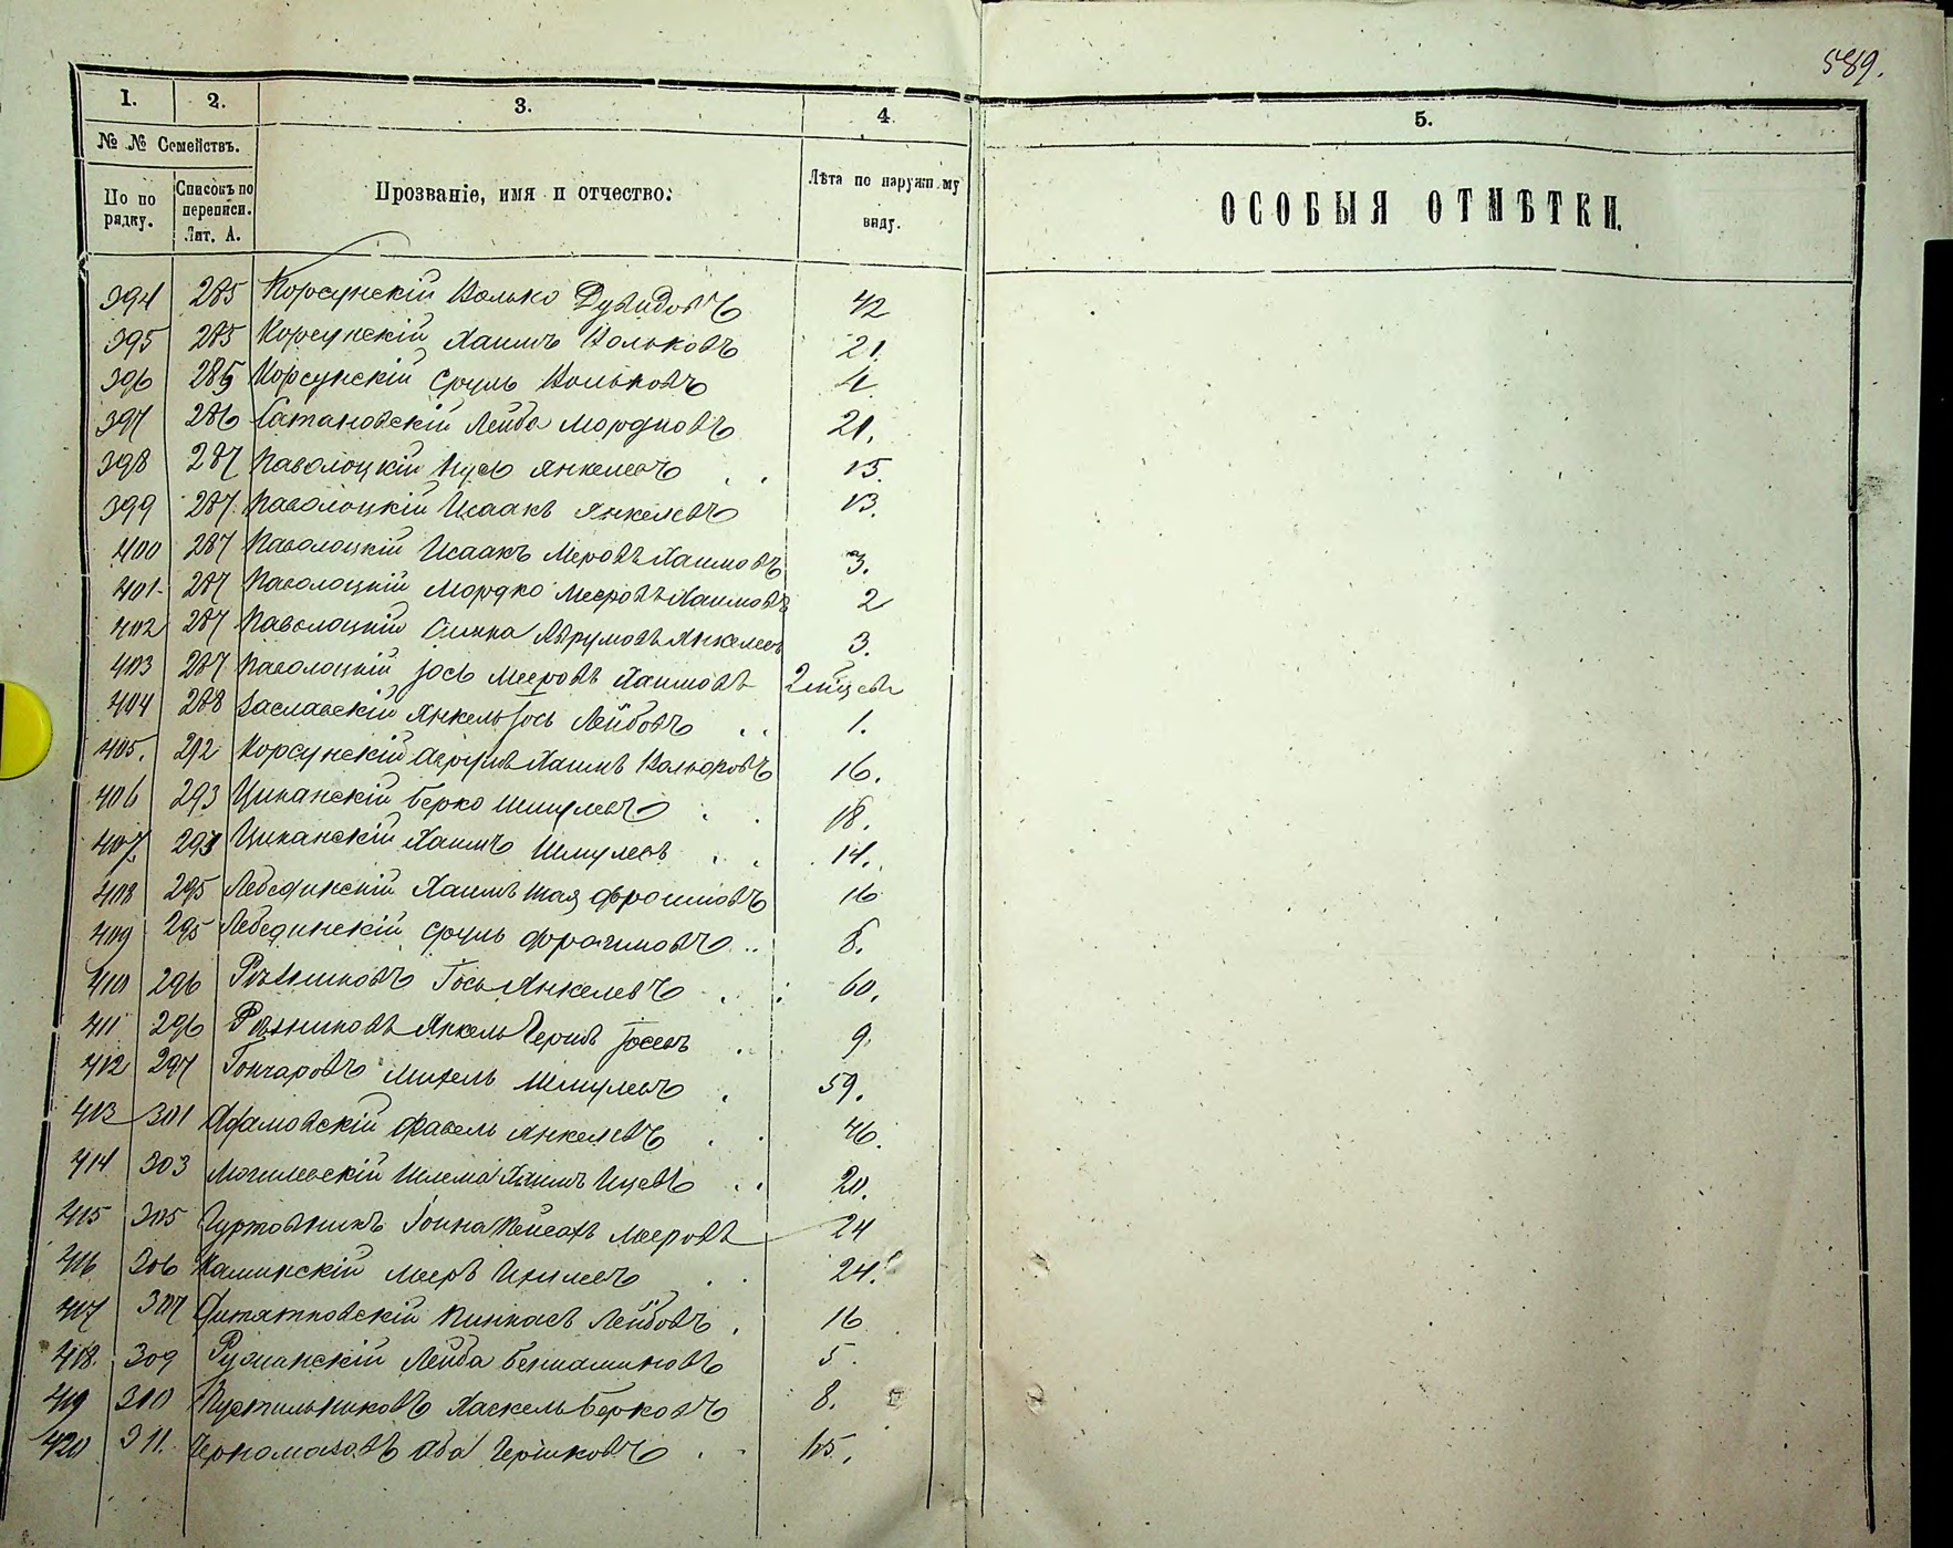 589.
1. 2. 3. 4. 5.
№ № Семействъ.
По порядку. Списокъ по переписи. Лит. А. Прозваніе, имя и отчество: Лѣта по наружн.му виду. ОСОБЫЯ ОТМѢТКИ.
394 285 Корсунскій Волько Дувидовъ 42
395 285 Корсунскій Хаимъ Вольковъ 21.
396 285 Корсунскій Сруль Вольковъ 4.
397 286 Сатановскій Лейба Мордковъ 21.
398 287 Паволоцкій Нусь Янкелевъ 15.
399 287. Паволоцкій Исаакъ Янкелевъ 13.
400 287 Паволоцкій Исаакъ Меровъ Хаимовъ 3.
401. 287 Паволоцкій Мордко Мееровъ Хаимовъ 2
402 287 Паволоцкій Аврумовъ Янкелевъ 3.
403 287 Паволоцкій Іось Мееровъ Хаимовъ 2
404 288 Заславскій Янкель Іось Лейбовъ 1.
405. 292 Корсунскій Аврумъ Хаимъ 16.
406 293 Циканскій Берко Шмулевъ 18.
407. 293 Циканскій Хаимъ Шмулевъ 14.
408 295 Лебединскій Хаимъ Шая Фроимовъ 16
409 295 Лебединскій Сруль Фроимовъ 8.
410 296 Рѣзниковъ Іось Янкелевъ 60.
411 296 Рѣзниковъ Янкель Гершъ Іосевъ 9.
412 297 Гончаровъ Михель Шмулевъ 59.
413 301 Адамовскій Фавель Янкелевъ 46.
414 303 Могилевскій Шлема Хаимъ Ицевъ 20.
415 305 Гуртовникъ Іойна Пейсахъ Мееровъ 24
416 306 Каминскій Мееръ 24.
417 307 Дитятковскій Пинкасъ Лейбовъ. 16
418. 309 Ружанскій Лейба Беніаминовъ 5.
419 310 Пустильниковъ Хаскель Берковъ 8.
420 311. Черномазовъ Аба Гершковъ 15.